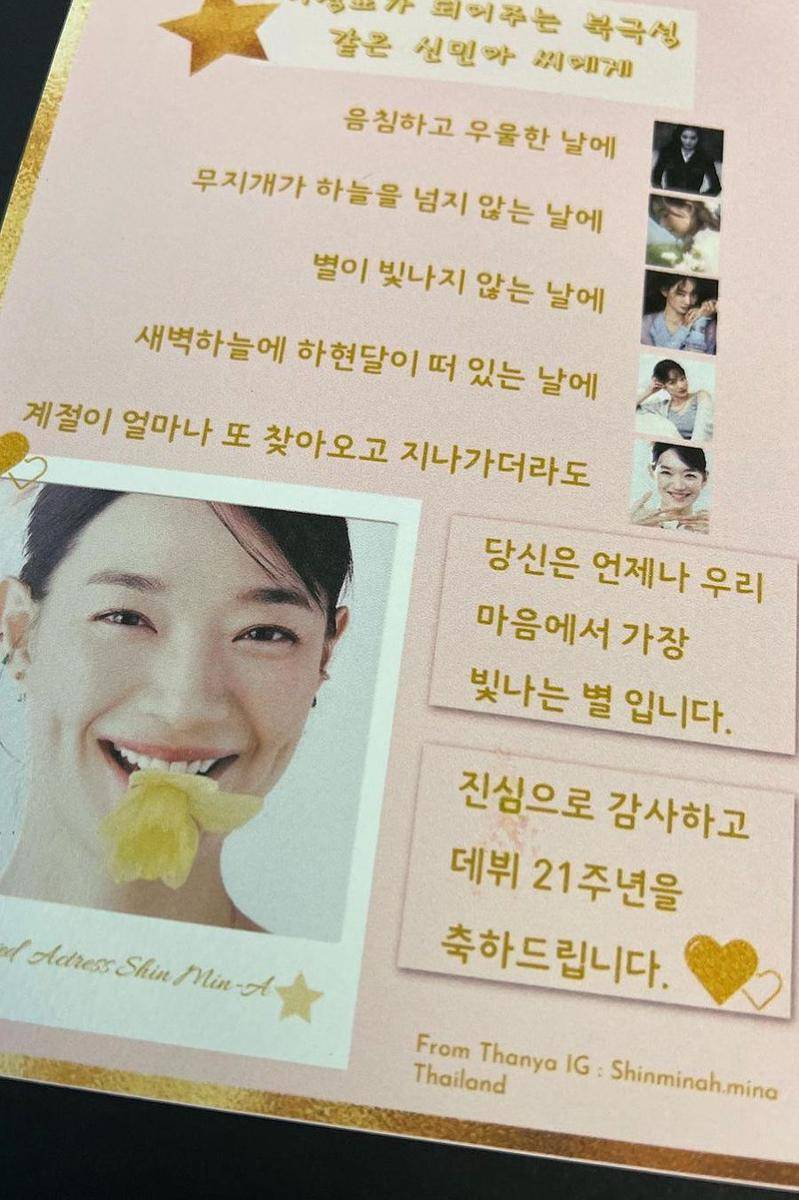 되어주는 북극성
같은 신민아 씨에게
음침하고 우울한 날에
무지개가 하늘을 넘지 않는 날에
별이 빛나지 않는 날에
새벽하늘에 하현달이 떠 있는 날에
계절이 얼마나 또 찾아오고 지나가더라도
당신은 언제나 우리
마음에서 가장
빛나는 별 입니다.
진심으로 감사하고
데뷔 21주년을
축하드립니다.
Actress Shin Min-A
From Thanya IG : Shinminah.mina
Thailand